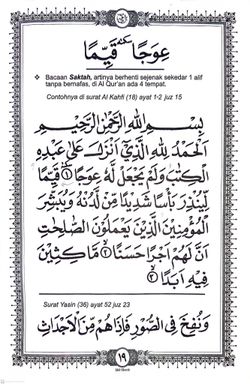 عِوَجًا سكتة قَيِّمًا
❖ Bacaan Saktah, artinya berhenti sejenak sekedar 1 alif
tanpa bernafas, di Al Qur'an ada 4 tempat.
Contohnya di surat Al Kahfi (18) ayat 1-2 juz 15
بِسْمِ اللهِ الرَّحْمٰنِ الرَّحِيْمِ
اَلْحَمْدُ لِلّٰهِ الَّذِيْٓ اَنْزَلَ عَلٰى عَبْدِهِ
الْكِتٰبَ وَلَمْ يَجْعَلْ لَّهٗ عِوَجًا ۝١ قَيِّمًا
لِّيُنْذِرَ بَأْسًا شَدِيْدًا مِّنْ لَّدُنْهُ وَيُبَشِّرَ
الْمُؤْمِنِيْنَ الَّذِيْنَ يَعْمَلُوْنَ الصّٰلِحٰتِ
اَنَّ لَهُمْ اَجْرًا حَسَنًا ۝٢ مَّاكِثِيْنَ
فِيْهِ اَبَدًا ۝٣
Surat Yasin (36) ayat 52 juz 23
وَنُفِخَ فِى الصُّوْرِ فَاِذَا هُمْ مِّنَ الْاَجْدَاثِ
١٩